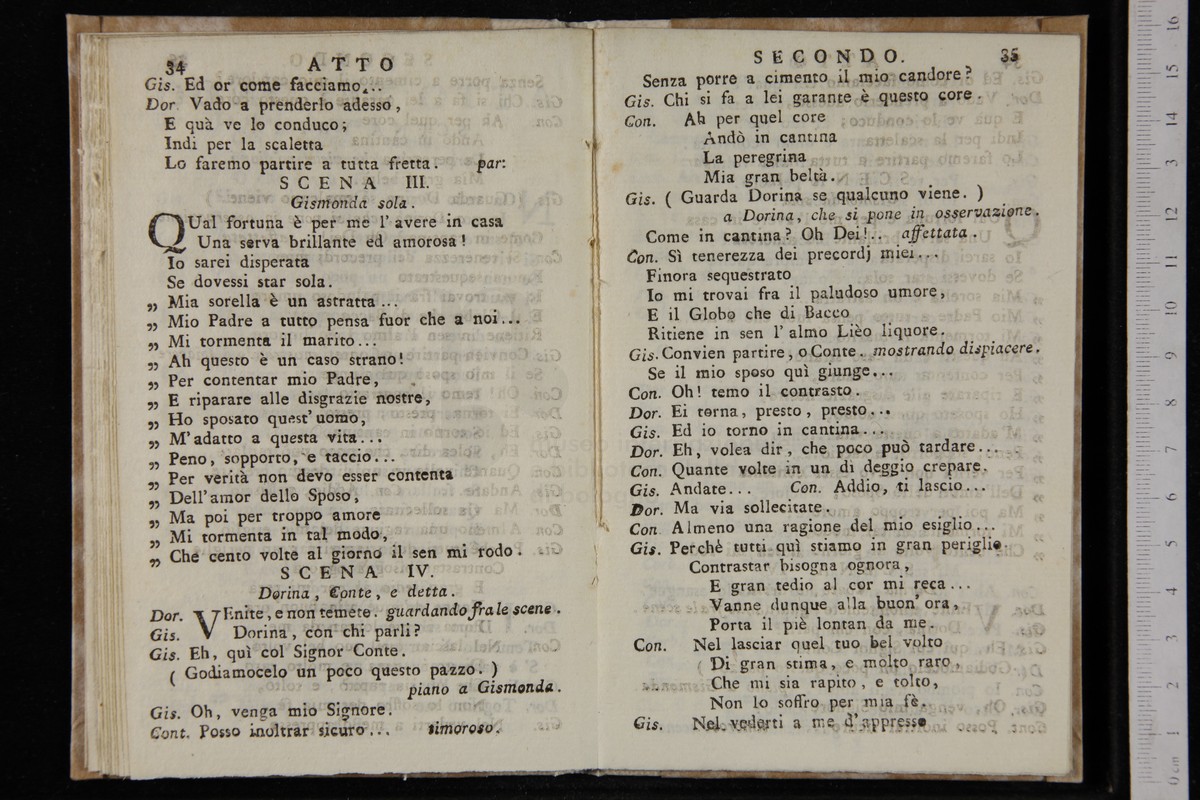 34 ATTO
Gis. Ed or come facciamo...
Dor. Vado a prenderlo adesso,
E quà ve lo conduco;
Indi per la scaletta
Lo faremo partire a tutta fretta. par:
SCENA III.
Gismonda sola.
QUal fortuna è per me l' avere in casa
Una serva brillante ed amorosa!
Io sarei disperata
Se dovessi star sola.
„ Mia sorella è un astratta...
„ Mio Padre a tutto pensa fuor che a noi...
„ Mi tormenta il marito...
„ Ah questo è un caso strano!
„ Per contentar mio Padre,
„ E riparare alle disgrazie nostre,
„ Ho sposato quest' uomo,
„ M' adatto a questa vita...
„ Peno, sopporto, e taccio...
„ Per verità non devo esser contenta
„ Dell' amor dello Sposo,
„ Ma poi per troppo amore
„ Mi tormenta in tal modo,
„ Che cento volte al giorno il sen mi rodo.
SCENA IV.
Dorina, Conte, e detta.
Dor. VEnite, e non temete. guardando fra le scene.
Gis. Dorina, con chi parli?
Gis. Eh, quì col Signor Conte.
( Godiamocelo un poco questo pazzo. )
piano a Gismonda.
Gis. Oh, venga mio Signore.
Cont. Posso inoltrar sicuro... timoroso.
SECONDO. 35
Senza porre a cimento il mio candore?
Gis. Chi si fa a lei garante è questo core.
Con. Ah per quel core
Andò in cantina
La peregrina
Mia gran beltà.
Gis. ( Guarda Dorina se qualcuno viene. )
a Dorina, che si pone in osservazione.
Come in cantina? Oh Dei!.. affettata.
Con. Sì tenerezza dei precordj miei...
Finora sequestrato
Io mi trovai fra il paludoso umore,
E il Globo che di Bacco
Ritiene in sen l' almo Lièo liquore.
Gis. Convien partire, o Conte. mostrando dispiacere.
Se il mio sposo quì giunge...
Con. Oh! temo il contrasto.
Dor. Ei torna, presto, presto...
Gis. Ed io torno in cantina...
Dor. Eh, volea dir, che poco può tardare...
Con. Quante volte in un dì deggio crepare.
Gis. Andate... Con. Addio, ti lascio...
Dor. Ma via sollecitate.
Con. Almeno una ragione del mio esiglio...
Gis. Perchè tutti quì stiamo in gran periglio.
Contrastar bisogna ognora,
E gran tedio al cor mi reca...
Vanne dunque alla buon' ora,
Porta il piè lontan da me.
Con. Nel lasciar quel tuo bel volto
Di gran stima, e molto raro,
Che mi sia rapito, e tolto,
Non lo soffro per mia fè.
Gis. Nel vederti a me d' appresso